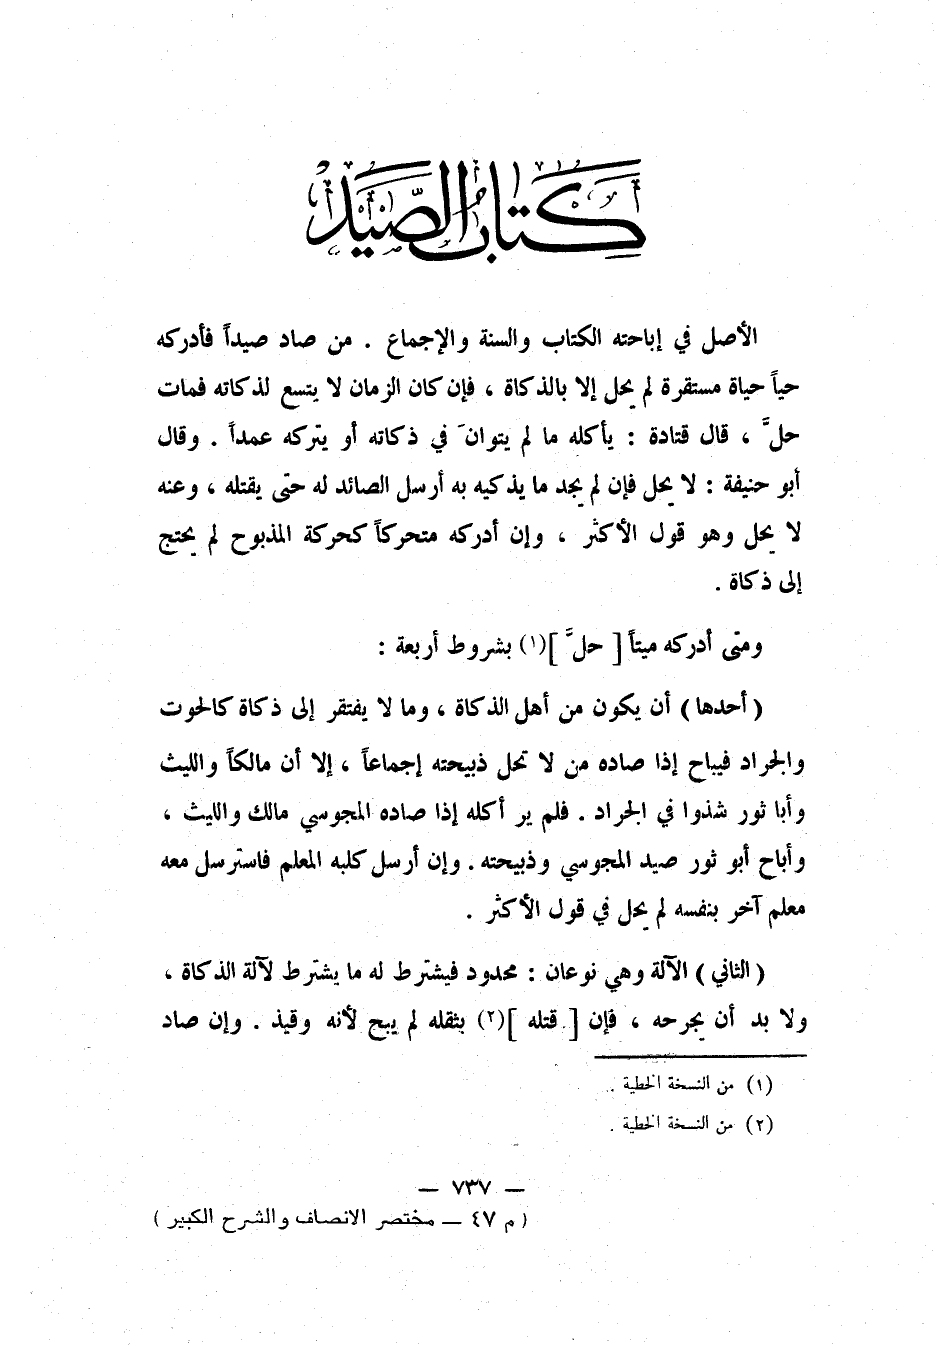 كتاب الصيد
الأصل في إباحته الكتاب والسنة والإجماع . من صاد صيداً فأدركه
حياً حياة مستقرة لم يحل إلا بالذكاة ، فإن كان الزمان لا يتسع لذكاته فمات
حلَّ ، قال قتادة : يأكله ما لم يتوانَ في ذكاته أو يتركه عمداً . وقال
أبو حنيفة : لا يحل فإن لم يجد ما يذكيه به أرسل الصائد له حتى يقتله ، وعنه
لا يحل وهو قول الأكثر ، وإن أدركه متحركاً كحركة المذبوح لم يحتج
إلى ذكاة .
ومتى أدركه ميتاً [ حلَّ ](١) بشروط أربعة :
( أحدها ) أن يكون من أهل الذكاة ، وما لا يفتقر إلى ذكاة كالحوت
والجراد فيباح إذا صاده من لا تحل ذبيحته إجماعاً ، إلا أن مالكاً والليث
وأبا ثور شذوا في الجراد . فلم ير أكله إذا صاده المجوسي مالك والليث ،
وأباح أبو ثور صيد المجوسي وذبيحته . وإن أرسل كلبه المعلم فاسترسل معه
معلم آخر بنفسه لم يحل في قول الأكثر .
( الثاني ) الآلة وهي نوعان : محدود فيشترط له ما يشترط لآلة الذكاة ،
ولا بد أن يجرحه ، فإن [ قتله ](٢) بثقله لم يبح لأنه وقيذ . وإن صاد
(١) من النسخة الخطية .
(٢) من النسخة الخطية .
— ٧٣٧ —
( م ٤٧ — مختصر الانصاف والشرح الكبير )